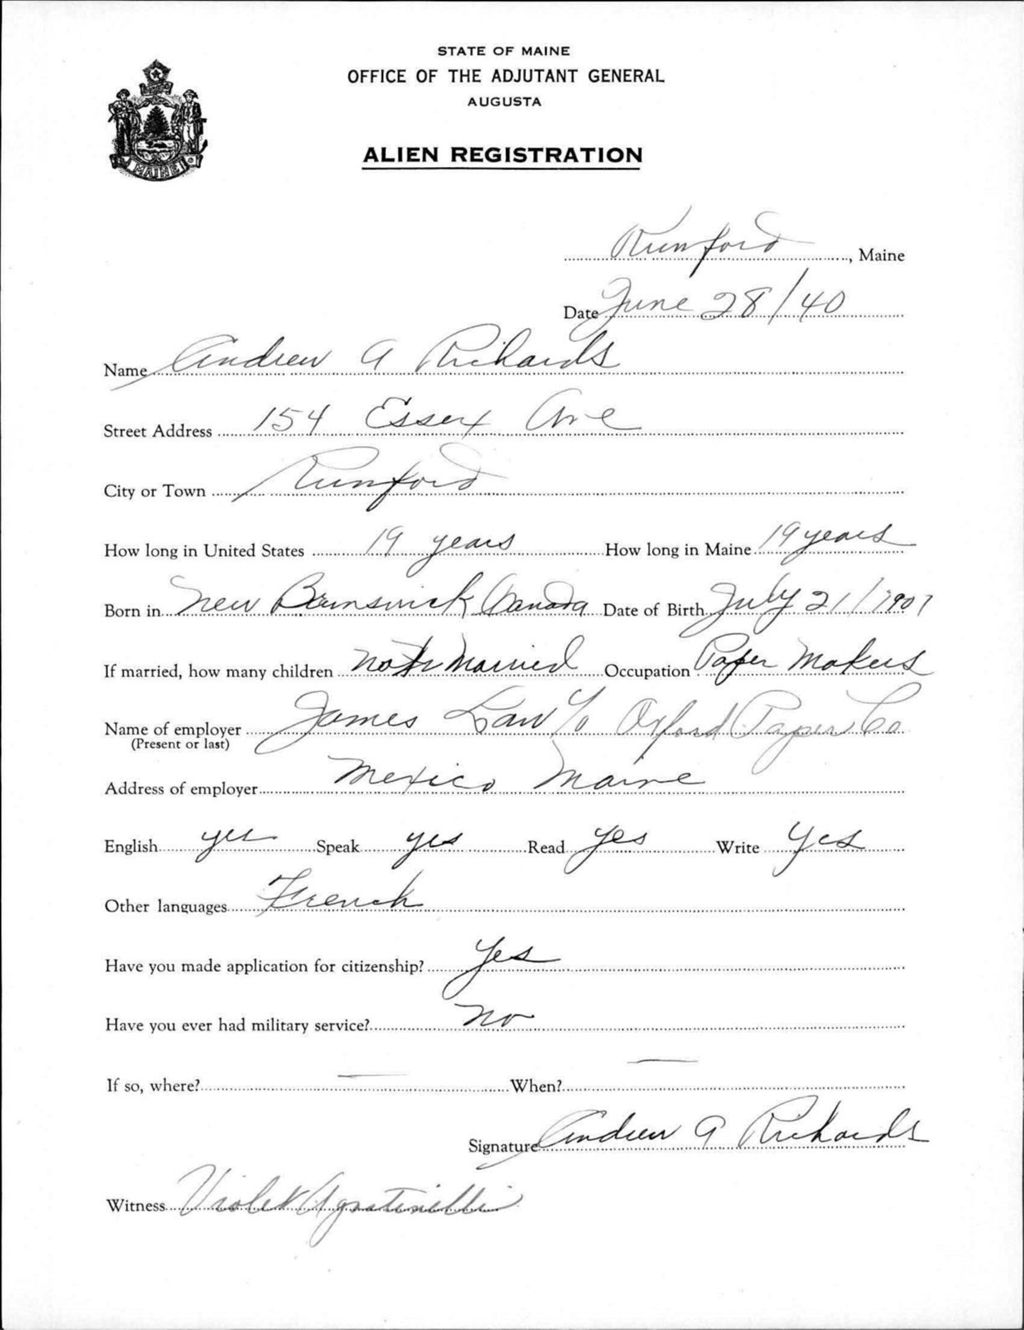 STATE OF MAINE
OFFICE OF THE ADJUTANT GENERAL
AUGUSTA
ALIEN REGISTRATION
MAINE
Rumford, Maine
Date June 28/40
Name Andrew A Richards
Street Address 154 Essex Ave
City or Town Rumford
How long in United States 19 years How long in Maine 19 years
Born in New Brunswick Canada Date of Birth July 21/1901
If married, how many children not married Occupation Paper Makers
Name of employer James Law % Oxford Paper Co
(Present or last)
Address of employer Mexico Maine
English yes Speak yes Read yes Write Yes
Other languages French
Have you made application for citizenship? Yes
Have you ever had military service? no
If so, where? — When? —
Signature Andrew A Richards
Witness Violet Agostinelli